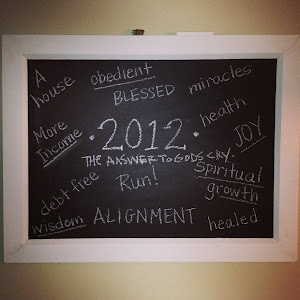 A
house
obedient
BLESSED
miracles
health
More
Income
· 2012 ·
JOY
THE ANSWER TO GODS CRY.
Run!
Spiritual
growth
debt free
wisdom
ALIGNMENT
healed